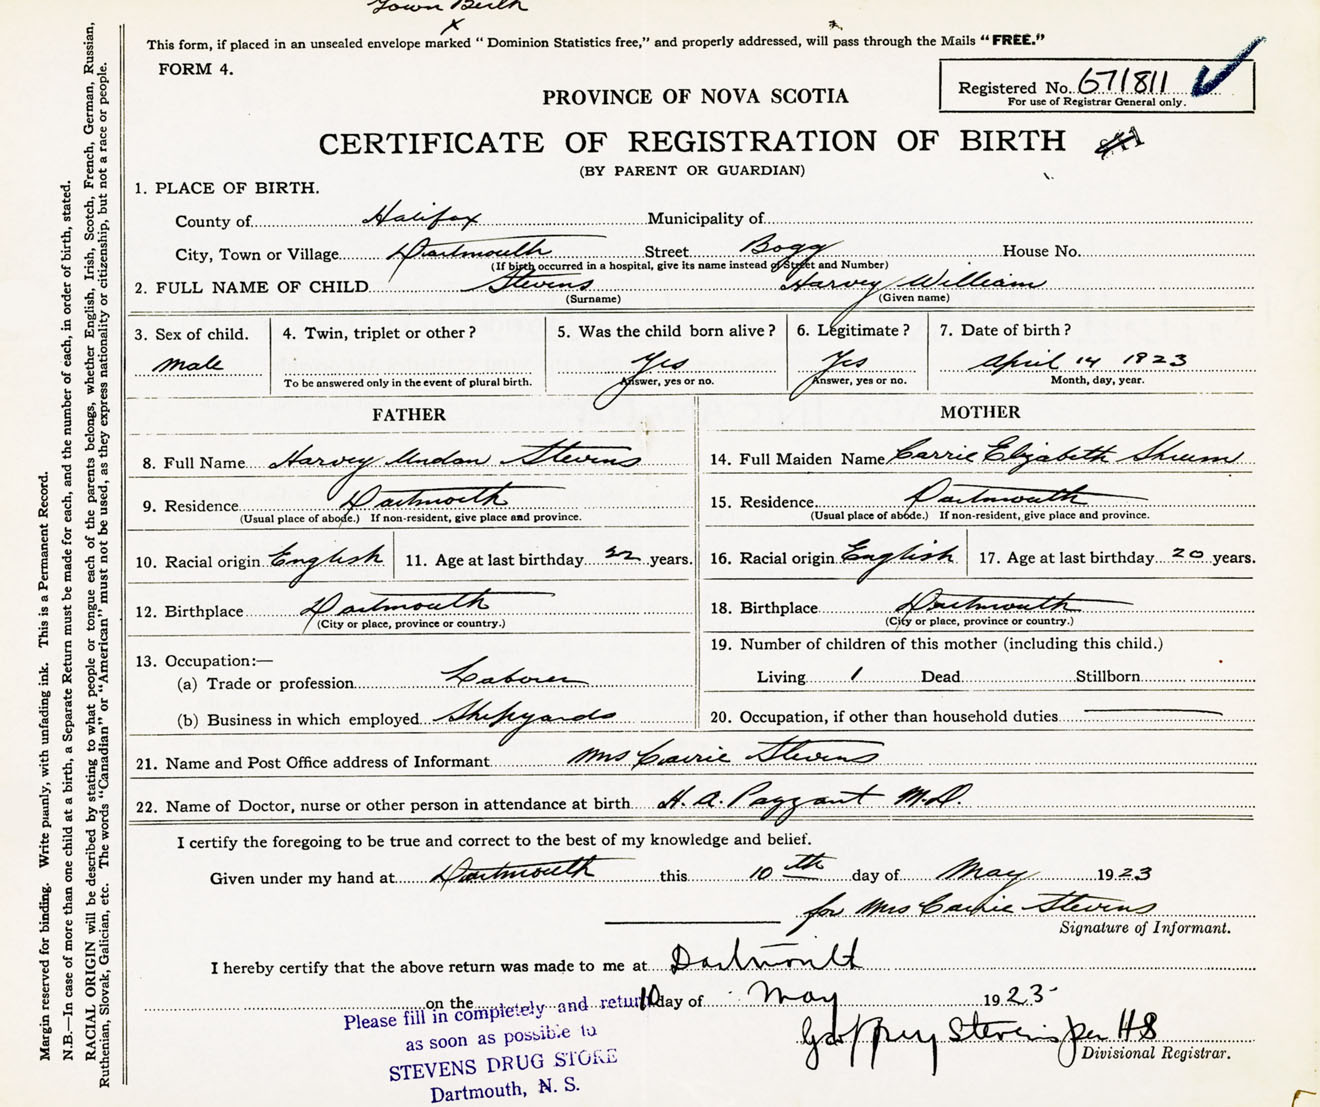 Town Birth
x
This form, if placed in an unsealed envelope marked “ Dominion Statistics free,” and properly addressed, will pass through the Mails “FREE.”
FORM 4.
Registered No. 671811
For use of Registrar General only.
PROVINCE OF NOVA SCOTIA
CERTIFICATE OF REGISTRATION OF BIRTH
(BY PARENT OR GUARDIAN)
1. PLACE OF BIRTH.
County of Halifax Municipality of
City, Town or Village Dartmouth Street Bogg House No.
(If birth occurred in a hospital, give its name instead of Street and Number)
2. FULL NAME OF CHILD Stevens Harvey William
(Surname) (Given name)
3. Sex of child. 4. Twin, triplet or other? 5. Was the child born alive? 6. Legitimate? 7. Date of birth?
male Yes Yes April 14 1923
To be answered only in the event of plural birth. Answer, yes or no. Answer, yes or no. Month, day, year.
FATHER
8. Full Name Harvey Stevens
9. Residence Dartmouth
(Usual place of abode.) If non-resident, give place and province.
10. Racial origin English 11. Age at last birthday 22 years.
12. Birthplace Dartmouth
(City or place, province or country.)
13. Occupation:—
(a) Trade or profession Laborer
(b) Business in which employed Shipyards
MOTHER
14. Full Maiden Name Carrie Elizabeth Shrum
15. Residence Dartmouth
(Usual place of abode.) If non-resident, give place and province.
16. Racial origin English 17. Age at last birthday 20 years.
18. Birthplace Dartmouth
(City or place, province or country.)
19. Number of children of this mother (including this child.)
Living 1 Dead Stillborn
20. Occupation, if other than household duties
21. Name and Post Office address of Informant Mrs Carrie Stevens
22. Name of Doctor, nurse or other person in attendance at birth H. A. Payzant M.D.
I certify the foregoing to be true and correct to the best of my knowledge and belief.
Given under my hand at Dartmouth this 10th day of May 1923
for Mrs Carrie Stevens
Signature of Informant.
I hereby certify that the above return was made to me at Dartmouth
on the 10 day of May 1923
Geoffrey Stevens per HS
Divisional Registrar.
Please fill in completely and return
as soon as possible to
STEVENS DRUG STORE
Dartmouth, N. S.
Margin reserved for binding. Write plainly, with unfading ink. This is a Permanent Record.
N.B.—In case of more than one child at a birth, a Separate Return must be made for each, and the number of each, in order of birth, stated.
RACIAL ORIGIN will be described by stating to what people or tongue each of the parents belongs, whether English, Irish, Scotch, French, German, Russian,
Ruthenian, Slovak, Galician, etc. The words “Canadian” or “American” must not be used, as they express nationality or citizenship, but not a race or people.